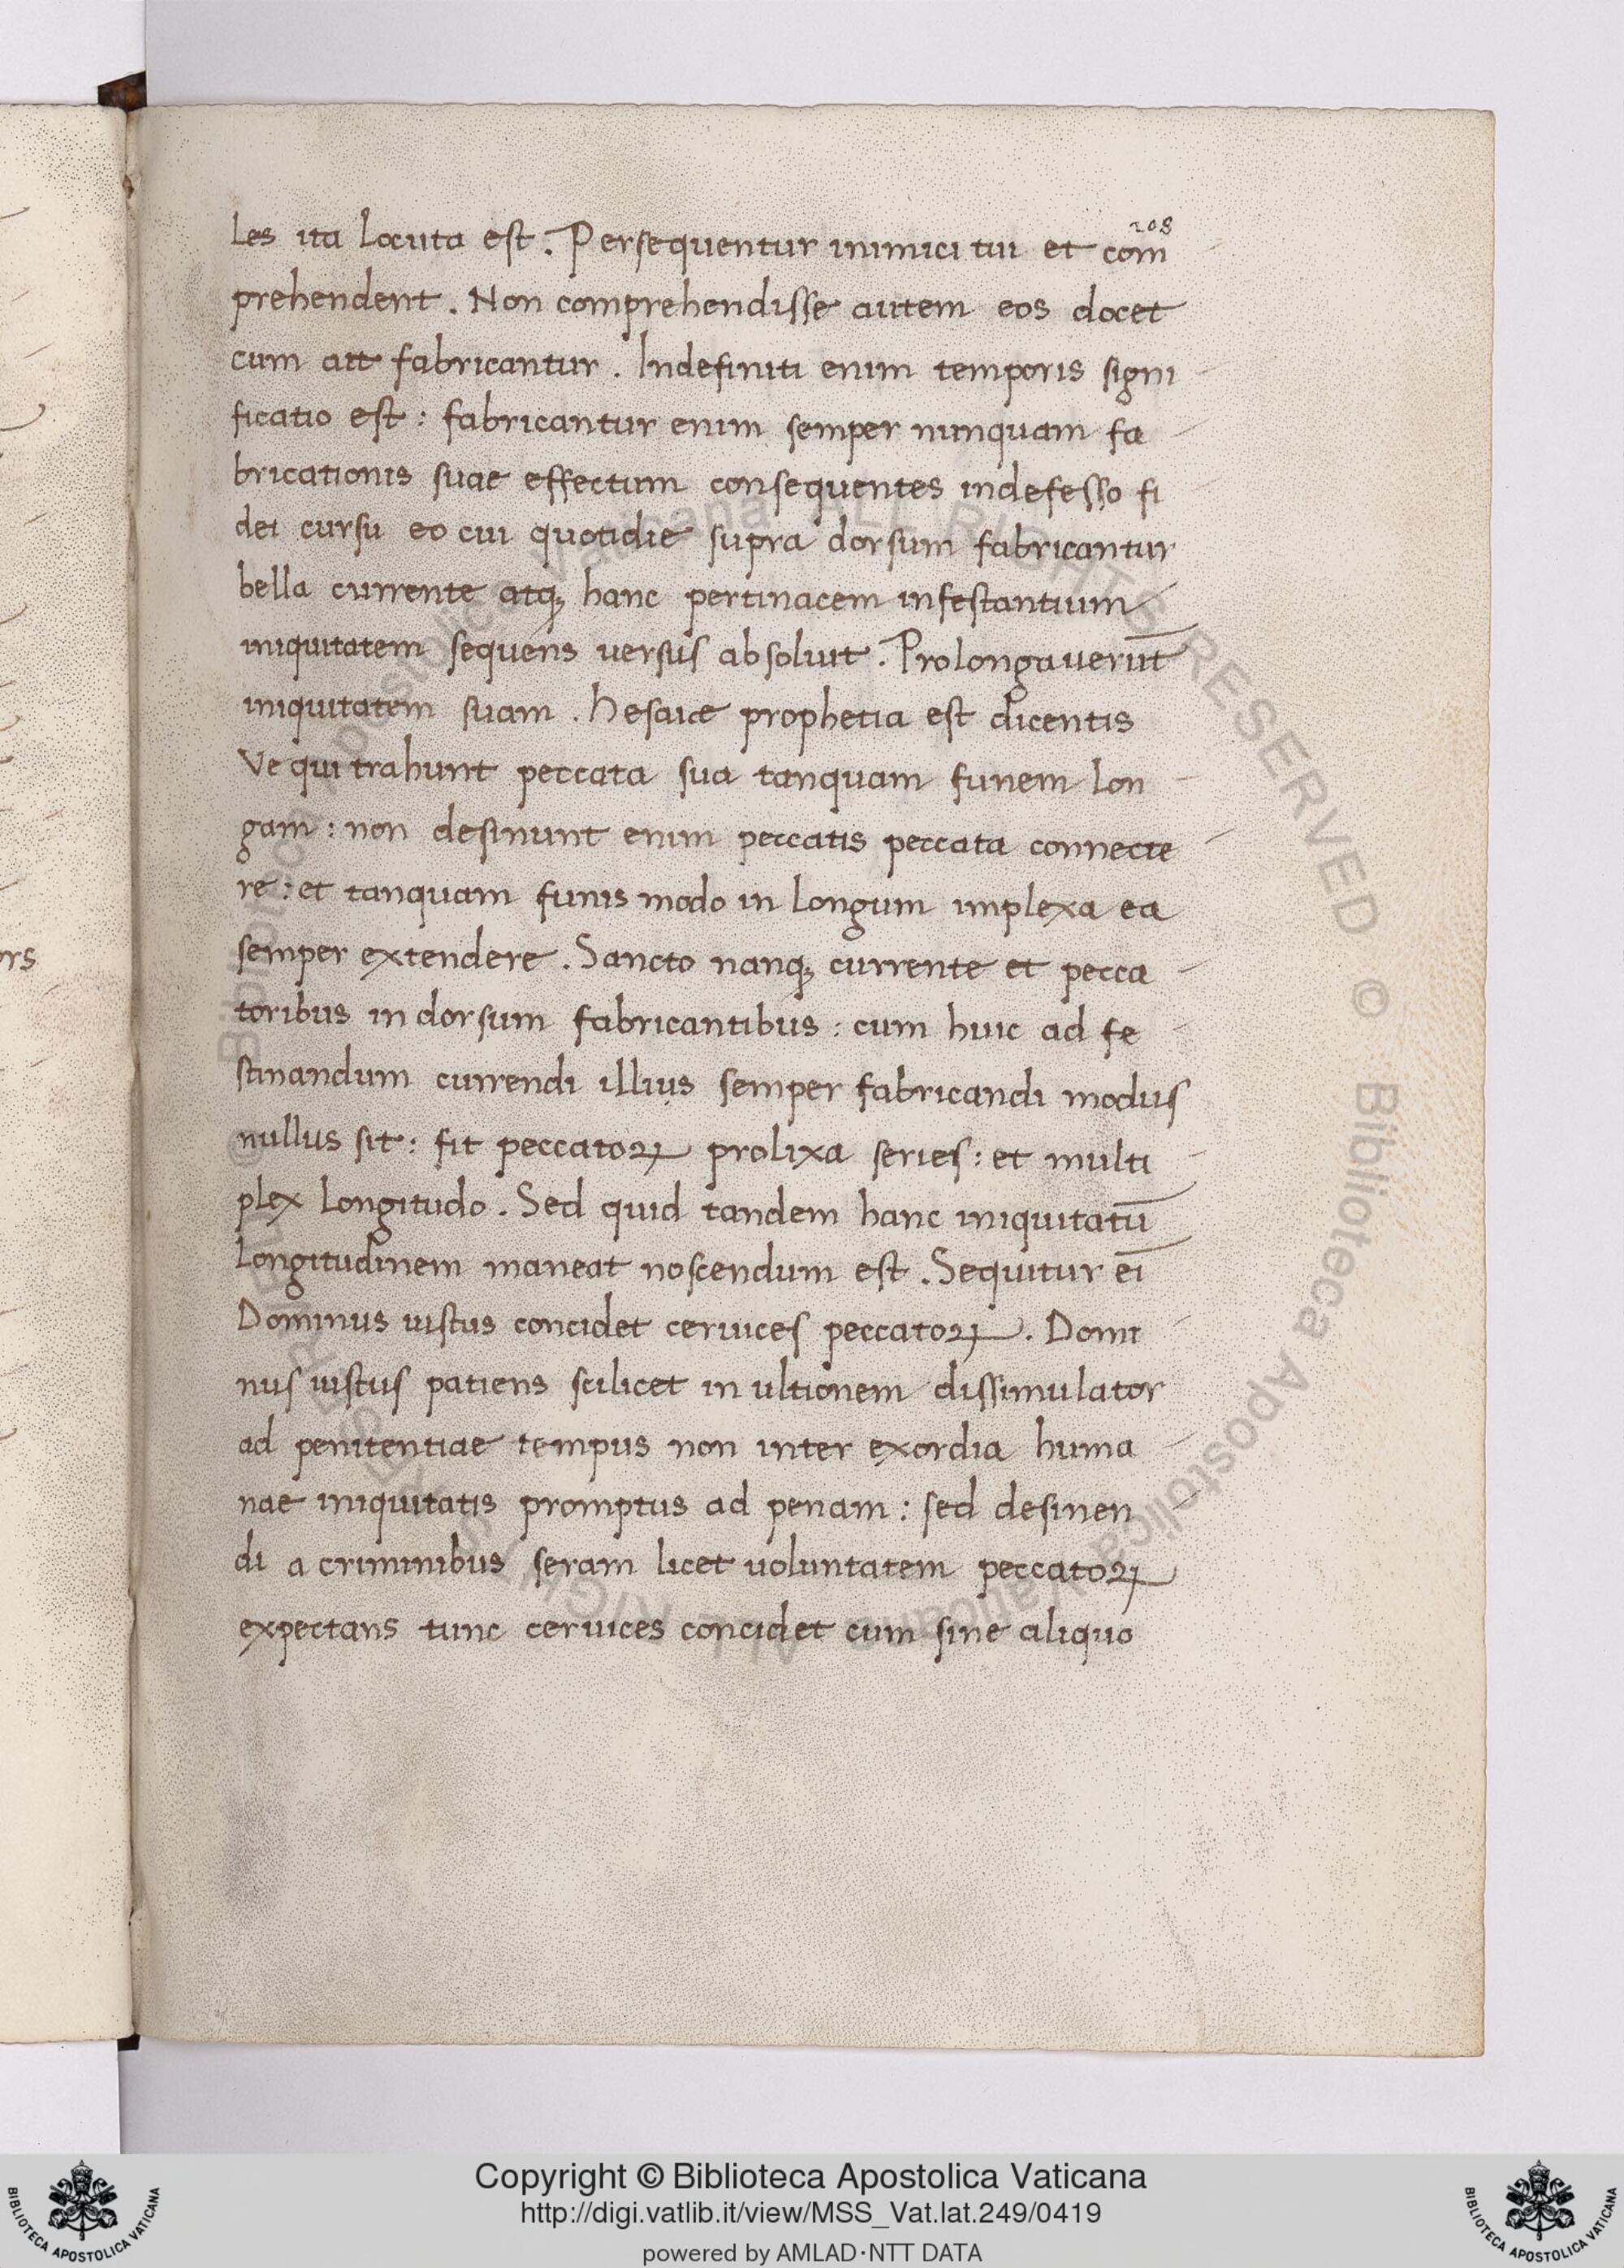 208
les ita locuta est. Persequentur inimici tui et com
prehendent. Non comprehendisse autem eos docet
cum ait fabricantur. Indefiniti enim temporis signi
ficatio est: fabricantur enim semper nunquam fa
bricationis suae effectum consequentes indefesso fi
dei cursu eo cui quotidie supra dorsum fabricantur
bella currente atqꝫ hanc pertinacem infestantium
iniquitatem sequens versus absoluit. Prolongauerūt
iniquitatem suam. hesaiae prophetia est dicentis
Ve qui trahunt peccata sua tanquam funem lon
gam: non desinunt enim peccatis peccata connecte
re: et tanquam funis modo in longum implexa ea
semper extendere. Sancto nanqꝫ currente et pecca
toribus in dorsum fabricantibus: cum huic ad fe
stinandum currendi illius semper fabricandi modus
nullus sit: fit peccatoꝝ prolixa series: et multi
plex longitudo. Sed quid tandem hanc iniquitatū
longitudinem maneat noscendum est. Sequitur ei̅
Dominus iustus concidet ceruices peccatoꝝ. Domi
nus iustus patiens scilicet in ultionem dissimulator
ad penitentiae tempus non inter exordia huma
nae iniquitatis promptus ad penam: sed desinen
di a criminibus seram licet uoluntatem peccatoꝝ
expectans tunc ceruices concidet cum sine aliquo
ors
Biblioteca Apostolica Vaticana ALL RIGHTS RESERVED © Biblioteca Apostolica Vaticana ALL RIGHTS RESERVED ©
Copyright © Biblioteca Apostolica Vaticana
http://digi.vatlib.it/view/MSS_Vat.lat.249/0419
powered by AMLAD·NTT DATA
BIBLIOTECA APOSTOLICA VATICANA
BIBLIOTECA APOSTOLICA VATICANA